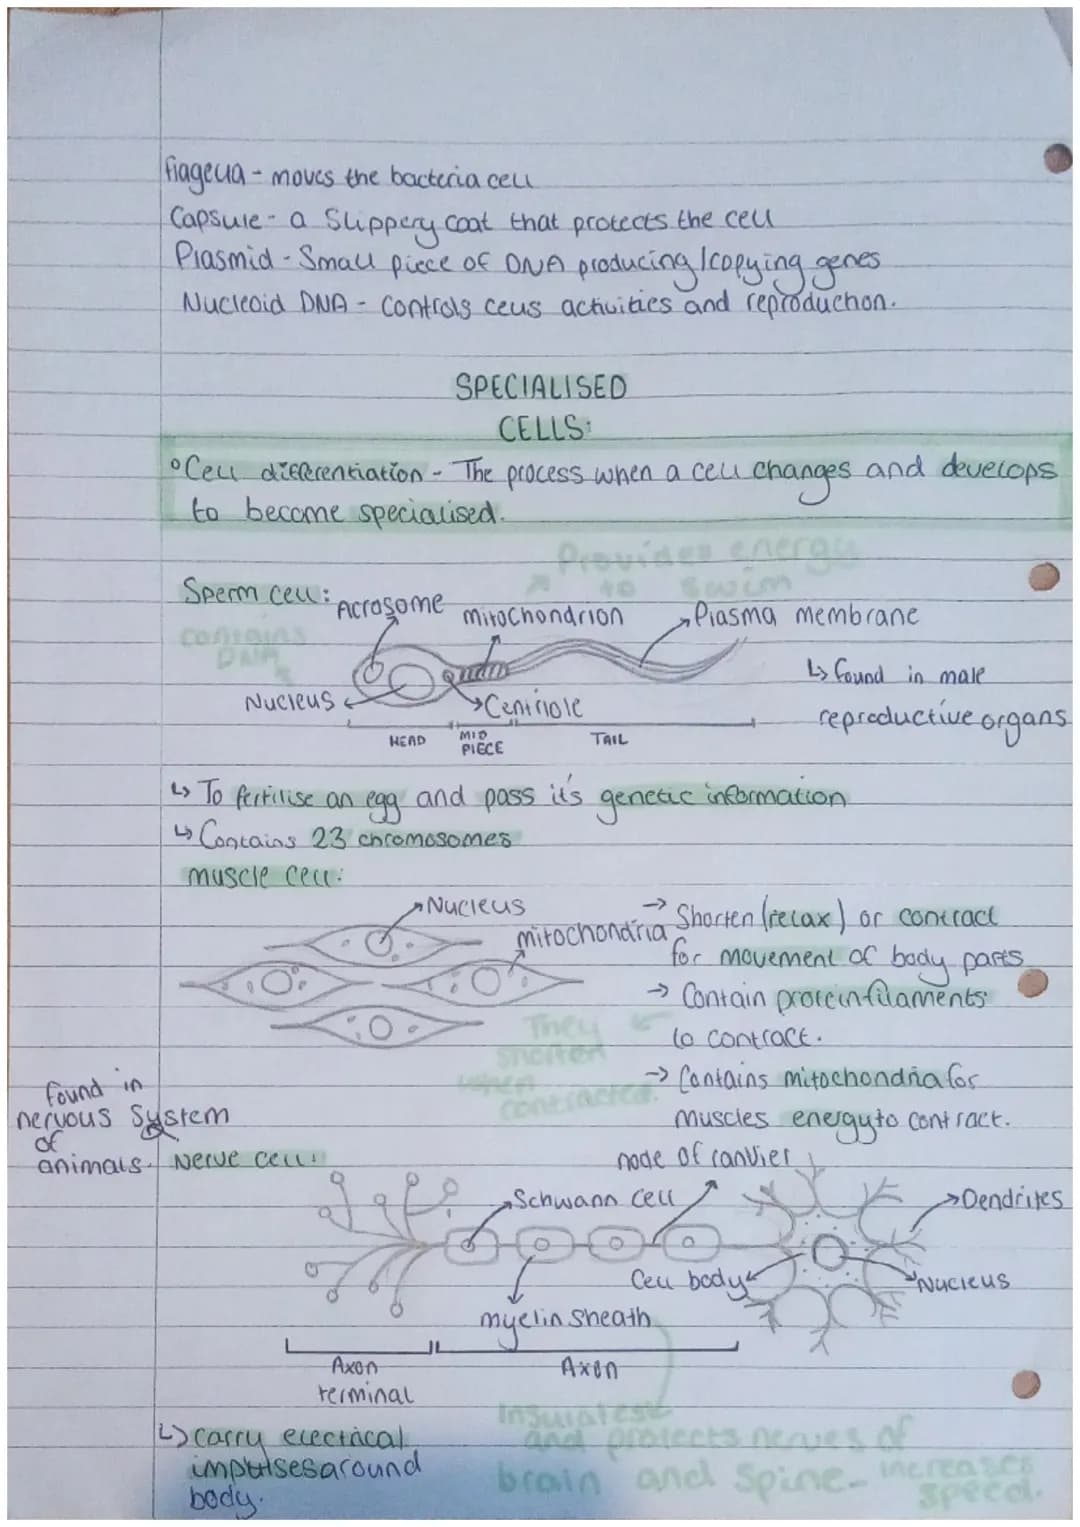 flagella - moves the bacteria cell
Capsule - a slippery coat that protects the cell
Plasmid - Small piece of DNA producing/copying genes
Nucleoid DNA - Controls cells activities and reproduction.
SPECIALISED
CELLS:
°Cell differentiation - The process when a cell changes and develops
to become specialised.
Provides energy
to swim
Sperm cell:
Acrosome
mitochondrion
Plasma membrane
contains
DNA
Nucleus
Centriole
↳ found in male
reproductive organs
HEAD
MID
PIECE
TAIL
↳ To fertilise an egg and pass it's genetic information
↳ Contains 23 chromosomes
muscle cell:
Nucleus
mitochondria
→ Shorten (relax) or contract
for movement of body parts
→ Contain protein filaments
to contract.
They
shorten
when
contracted.
→ Contains mitochondria for
muscles energy to contract.
found in
nervous System
of
animals.
Nerve cell:
node of ranvier
Schwann cell
Dendrites
Cell body
Nucleus
myelin sheath
Axon
terminal
Axon
↳ carry electrical
impulses around
body.
Insulates
and protects nerves of
brain and spine - increases
speed.